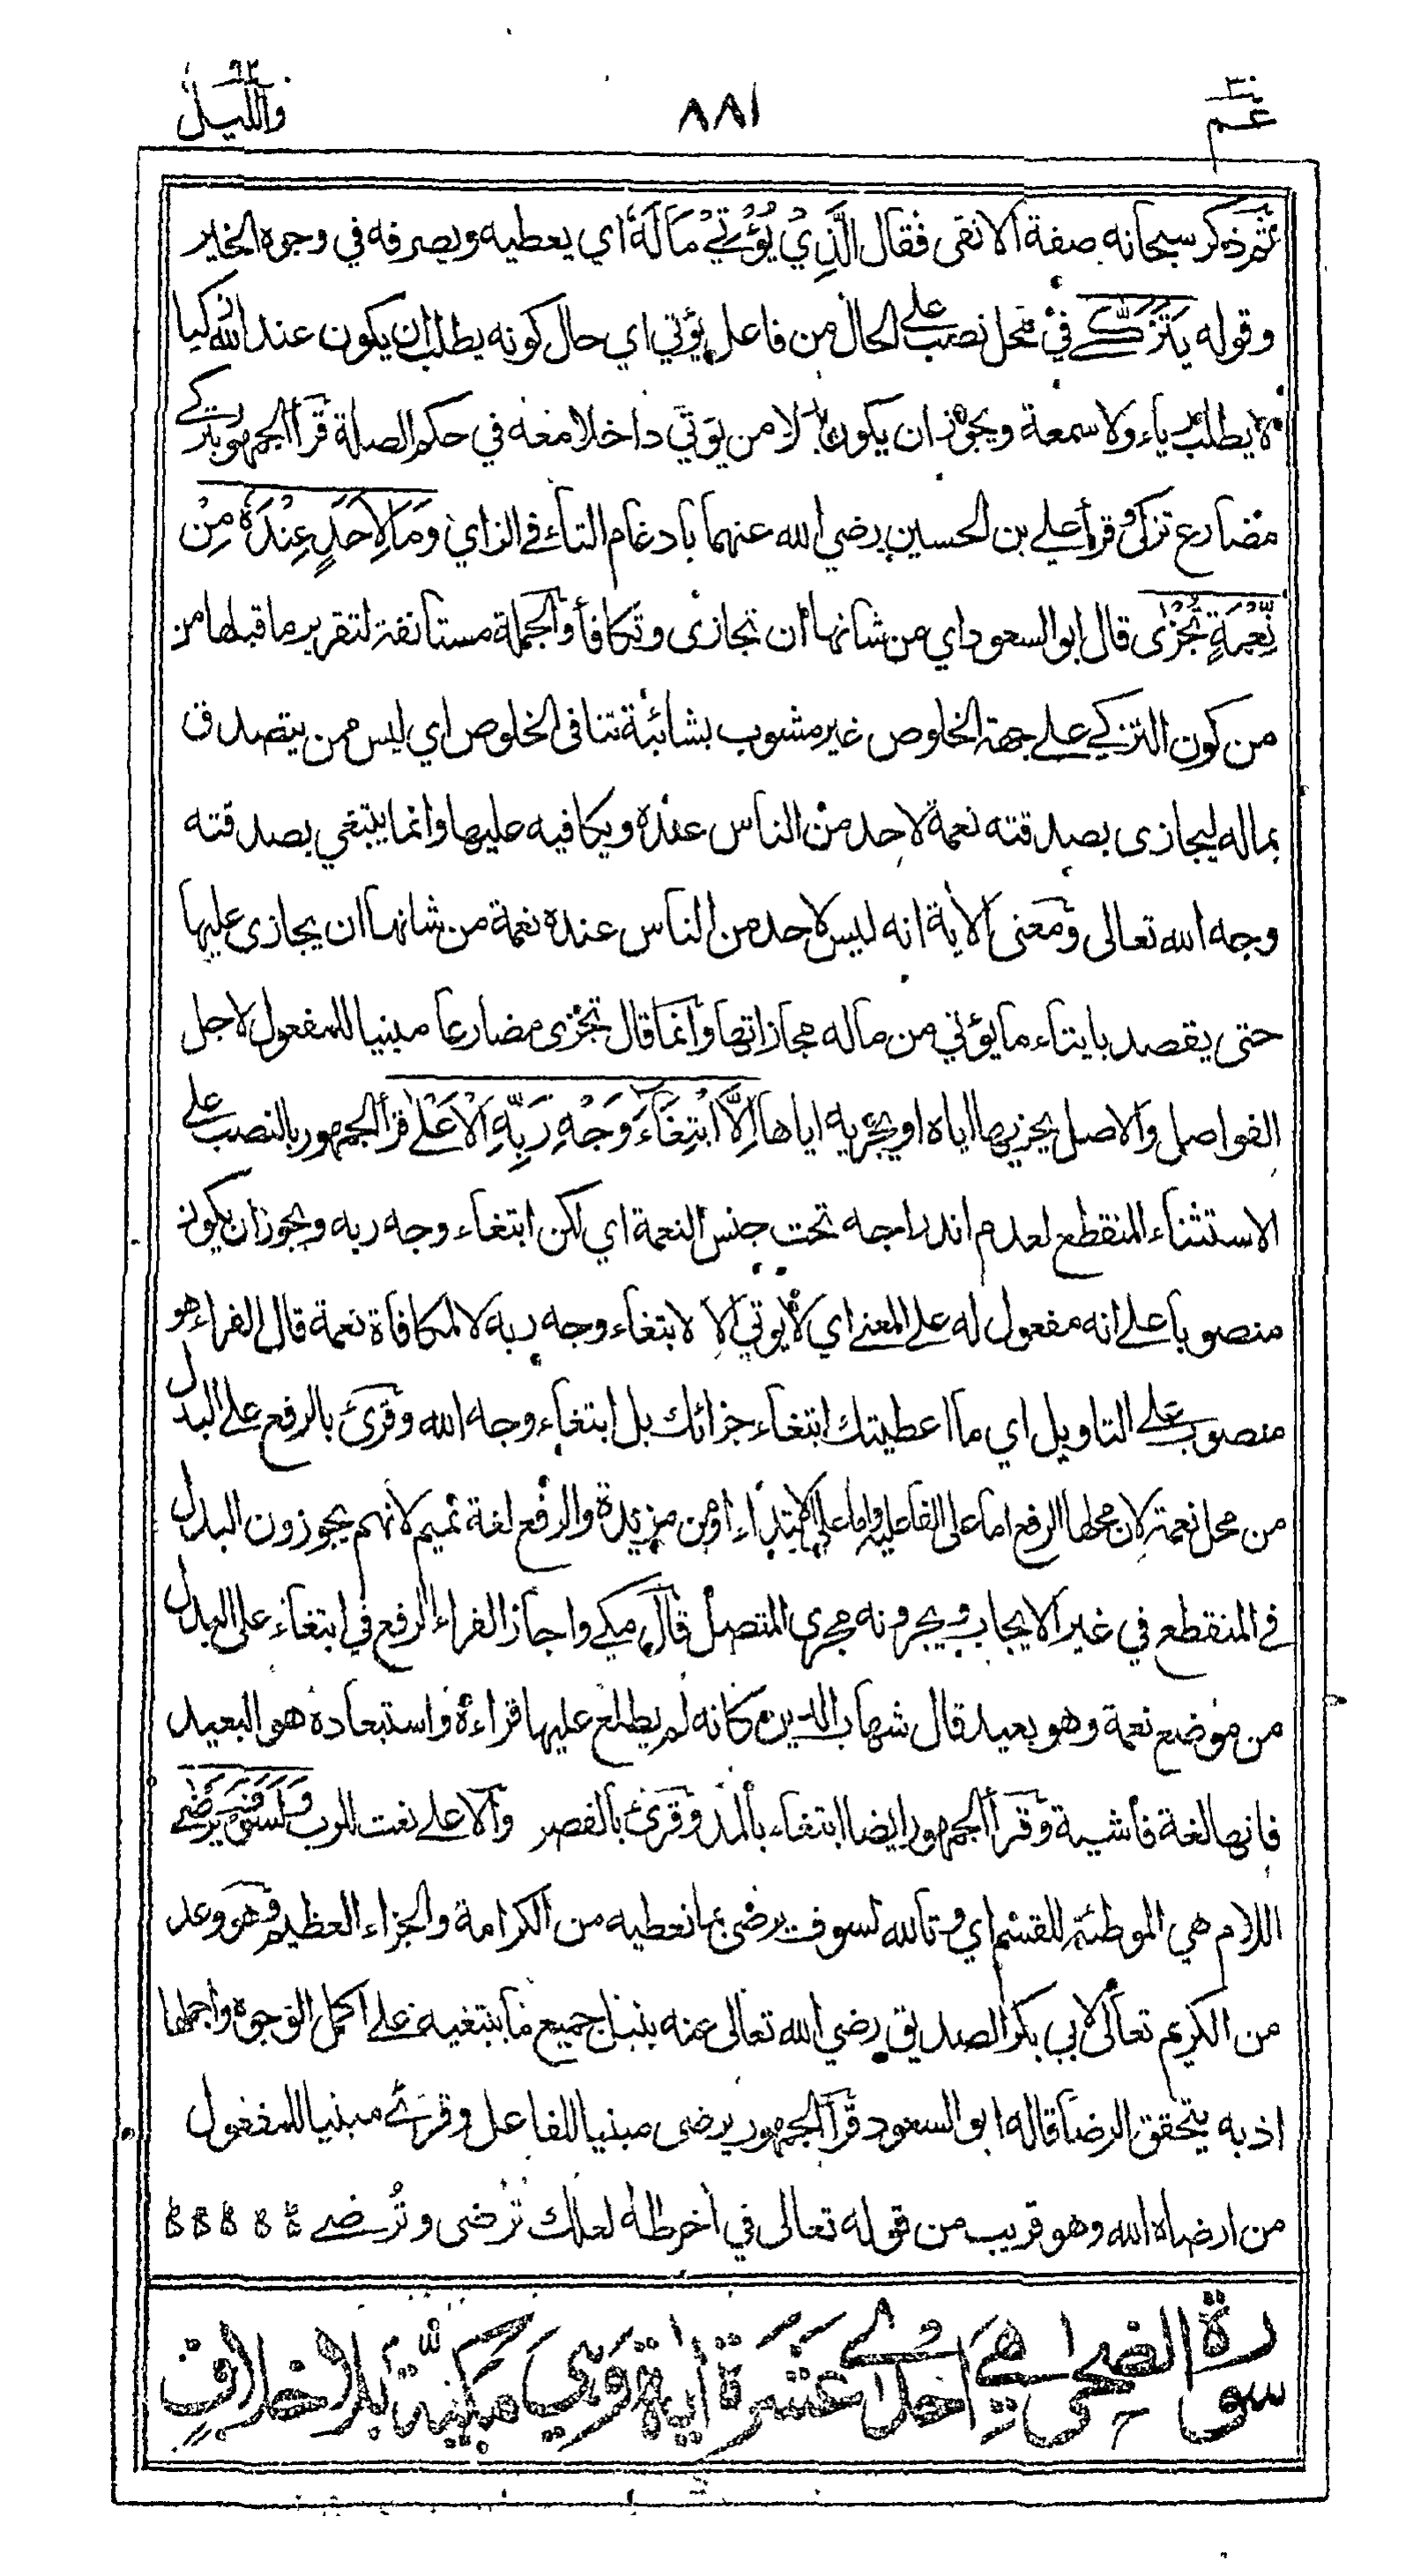 عم ٣٠
٨٨١
والليل ٩٢
ثم ذكر سبحانه صفة الاتقى فقال الَّذِيْ يُؤْتِيْ مَالَهٗ اي يعطيه ويصرفه في وجوه الخير
وقوله يَتَزَكّٰے في محل نصب على الحال من فاعل يؤتي اي حال كونه يطلب ان يكون عند الله زكيا
لا يطلب رياء ولا سمعة ويجوز ان يكون بدلا من يؤتي داخلا معه في حكم الصلة قرأ الجمهور يتزكے
مضارع تزكى وقرأ علي بن الحسين رضي الله عنهما بادغام التاء في الزاي وَمَا لِاَحَدٍ عِنْدَهٗ مِنْ
نِّعْمَةٍ تُجْزٰى قال ابو السعود اي من شانها ان تجازى وتكافأ والجملة مستانفة لتقرير ما قبلها من
من كون التزكے على جهة الخلوص غير مشوب بشائبة تنافى الخلوص اي ليس ممن يتصدق
بماله ليجازى بصدقته نعمة لاحد من الناس عنده ويكافيه عليها وانما يبتغي بصدقته
وجه الله تعالى ومعنى الاية انه ليس لاحد من الناس عنده نعمة من شانها ان يجازى عليها
حتى يقصد بايتاء ما يؤتي من ماله مجازاتها وانما قال تجزى مضارعا مبنيا للمفعول لاجل
الفواصل والاصل يجزيها اياه او يجزيه اياها اِلَّا ابْتِغَآءَ وَجْهِ رَبِّهِ الْاَعْلٰے قرأ الجمهور بالنصب على
الاستثناء المنقطع لعدم اندراجه تحت جنس النعمة اي لكن ابتغاء وجه ربه ويجوز ان يكون
منصوبا على انه مفعول له على المعنى اي لا يؤتي الا لابتغاء وجه ربه لا لمكافاة نعمة قال الفراء هو
منصوب على التاويل اي ما اعطيتك ابتغاء جزائك بل ابتغاء وجه الله وقرئ بالرفع على البدل
من محل نعمة لان محلها الرفع اما على الفاعلية واما على الابتداء ومن مزيدة والرفع لغة تميم لانهم يجوزون البدل
في المنقطع في غير الايجاب ويجرونه مجرى المتصل قال مكي واجاز الفراء الرفع في ابتغاء على البدل
من موضع نعمة وهو بعيد قال شهاب الدين كانه لم يطلع عليها قراءة واستبعاده هو البعيد
فانها لغة فاشية وقرأ الجمهور ايضا ابتغاء بالمد وقرئ بالقصر والاعلى نعت للرب وَلَسَوْفَ يَرْضٰے
اللام هي الموطئة للقسم اي وتالله لسوف يرضى بما نعطيه من الكرامة والجزاء العظيم وهو وعد
من الكريم تعالى لابي بكر الصديق رضي الله تعالى عنه بنيل جميع ما يبتغيه على اكمل الوجوه واجملها
اذ به يتحقق الرضا قاله ابو السعود قرأ الجمهور يرضى مبنيا للفاعل وقرئ مبنيا للمفعول
من ارضاه الله وهو قريب من قوله تعالى في اخر طه لعلك تَرضى وتُرضے
سورة الضحى هي احدى عشرة اية وهي مكية بلا خلاف